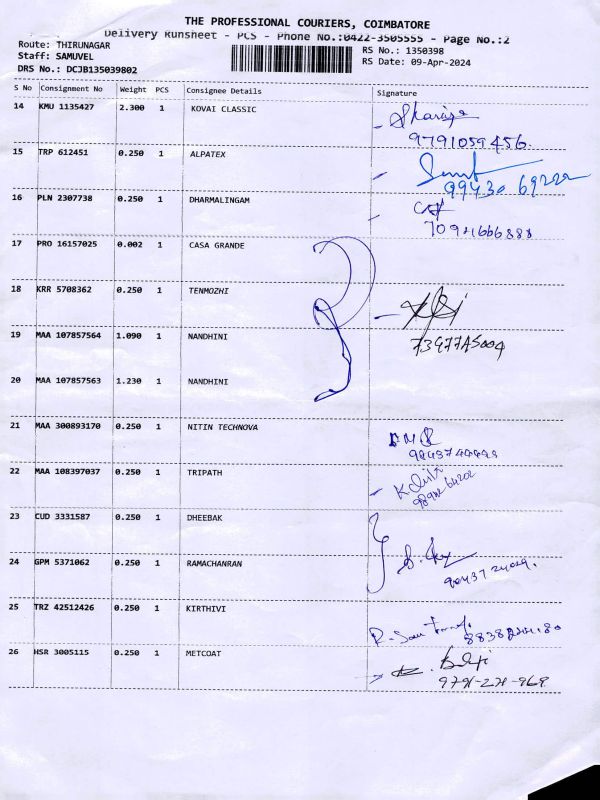 THE PROFESSIONAL COURIERS, COIMBATORE
Delivery Runsheet - PCS - Phone No.:0422-3505555 - Page No.:2
Route: THIRUNAGAR
RS No.: 1350398
Staff: SAMUVEL
RS Date: 09-Apr-2024
DRS No.: DCJB135039802
S No Consignment No Weight PCS Consignee Details Signature
14 KMU 1135427 2.300 1 KOVAI CLASSIC
9791059456.
15 TRP 612451 0.250 1 ALPATEX
99430 69222
16 PLN 2307738 0.250 1 DHARMALINGAM
17 PRO 16157025 0.002 1 CASA GRANDE
18 KRR 5708362 0.250 1 TENMOZHI
19 MAA 107857564 1.090 1 NANDHINI
20 MAA 107857563 1.230 1 NANDHINI
21 MAA 300893170 0.250 1 NITIN TECHNOVA
22 MAA 108397037 0.250 1 TRIPATH
23 CUD 3331587 0.250 1 DHEEBAK
24 GPM 5371062 0.250 1 RAMACHANRAN
25 TRZ 42512426 0.250 1 KIRTHIVI
26 HSR 3005115 0.250 1 METCOAT